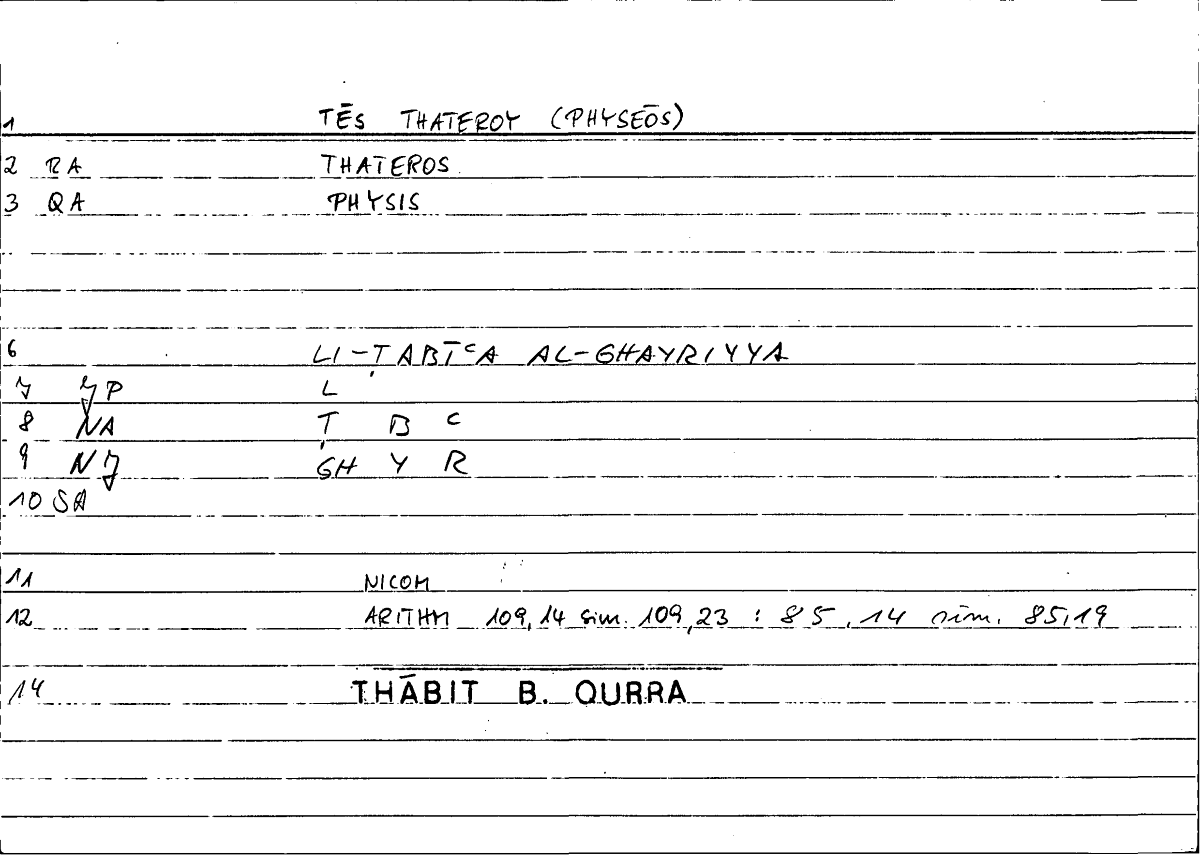 1 TĒS THATEROY (PHYSEŌS)
2 RA THATEROS
3 QA PHYSIS
6 LI-ṬABĪᶜA AL-GHAYRIYYA
7 JP L
8 NA Ṭ B ᶜ
9 NJ GH Y R
10 SA
11 NICOM
12 ARITHM 109,14 sim. 109,23 : 85,14 sim. 85,19
14 THĀBIT B. QURRA